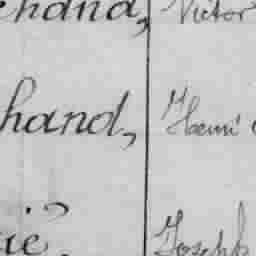 chand, Victor
hand, Henri
ie, Joseph